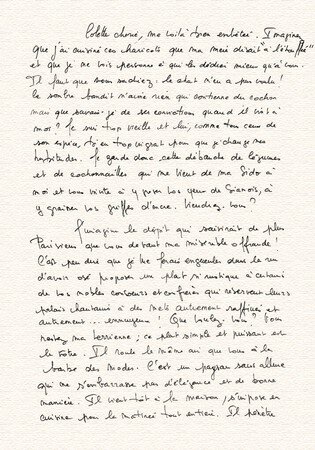 Colette chérie, me voilà bien embêtée. Imaginez
que j'ai cuisiné ces haricots que ma mère disait "à l'étouffée"
et que je ne vois personne à qui les dédier mieux qu'à vous.
Il faut que vous sachiez : le chat n'en a pas voulu !
Le sombre bandit n'aime rien qui contienne du cochon
mais que savais-je de ses convictions quand il vint à
moi ? Je suis trop vieille et lui, comme tous ceux de
son espèce, trop pour que je change mes
habitudes. Je garde donc cette débauche de légumes
et de cochonnailles qui me vient de ma Sido à
moi et vous invite à y poser vos yeux de Siamois, à
y graisser vos griffes d'encre. Viendrez-vous ?
J'imagine le dépit qui saisirait de plus
Parisiens que vous devant ma misérable offrande !
C'est peu dire que je me ferais engueuler dans la rue
d'avoir osé proposer un plat si rustique à certains
de vos nobles confrères qui réservent leurs
palais à des mets autrement raffinés et
autrement... ennuyeux ! Que voulez-vous ? Vous
restez ma terrienne ; ce plat simple et puissant est
le vôtre. Il roule le même que vous à la
barbe des modes. C'est un paysan sans allure
qui ne s'embarrasse pas d'élégance et de bonnes
manières. Il vient tôt à la maison, s'impose en
cuisine pour la matinée tout entière. Il pénètre